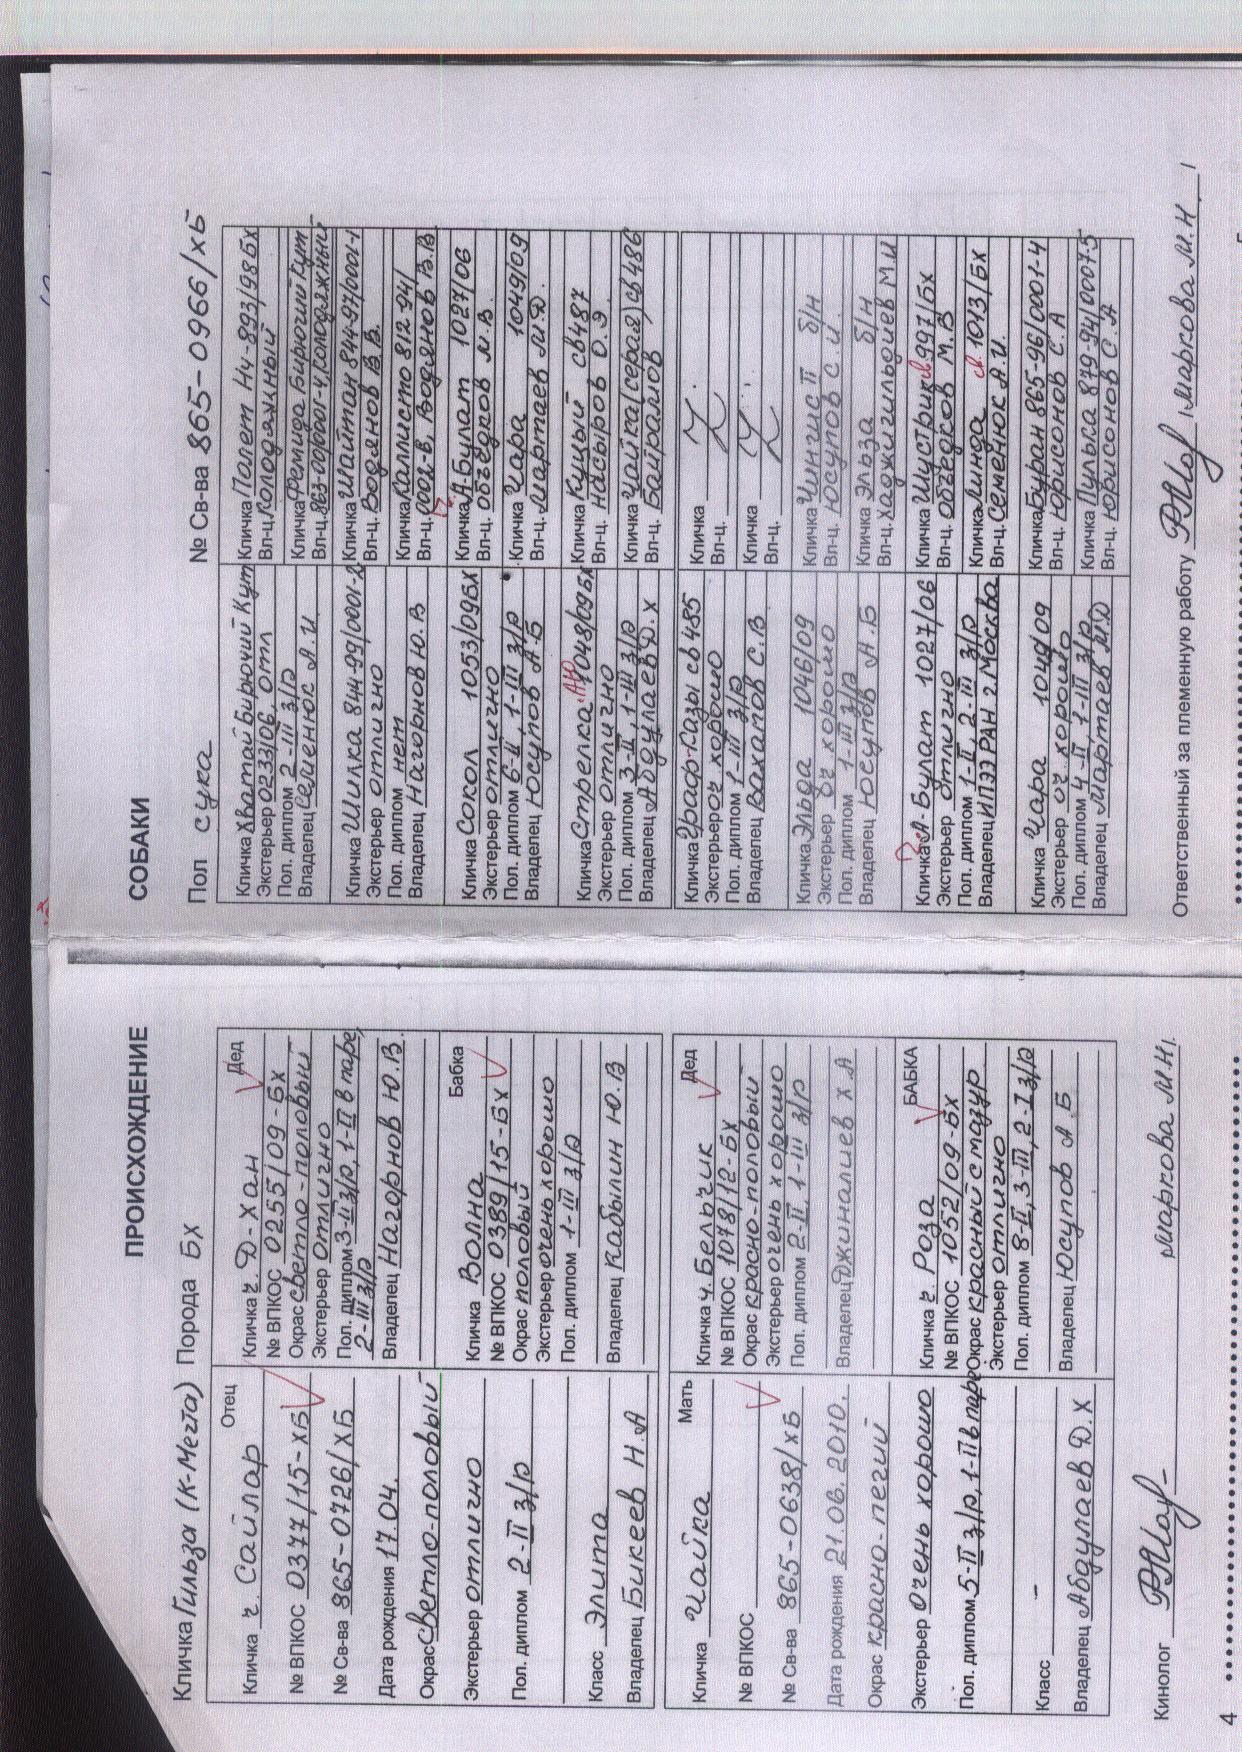 ПРОИСХОЖДЕНИЕ
Кличка Гильза (К-Мечта) Порода БХ
Отец
Кличка ч. Сайлар
№ ВПКОС 0377/15-хБ
№ Св-ва 865-0726/хБ
Дата рождения 17.04.
Окрас светло-половый
Экстерьер отлично
Пол. диплом 2-II з/р
Класс элита
Владелец Бикеев Н.А
Дед
Кличка ч. Д-Хан
№ ВПКОС 0255/09-Бх
Окрас светло-половый
Экстерьер отлично
Пол. диплом 3-II з/р, 1-II в паре,
2-III з/р
Владелец Нагорнов Ю.В.
Бабка
Кличка Волна
№ ВПКОС 0389/15-Бх
Окрас половый
Экстерьер очень хорошо
Пол. диплом 1-III з/р
Владелец Кабылин Ю.В
Мать
Кличка Чайка
№ ВПКОС
№ Св-ва 865-0638/хБ
Дата рождения 21.06.2010.
Окрас красно-пегий
Экстерьер очень хорошо
Пол. диплом 5-II з/р, 1-II в паре
Класс –
Владелец Абдулаев Д.Х
Дед
Кличка ч. Бельчик
№ ВПКОС 1078/12-Бх
Окрас красно-половый
Экстерьер очень хорошо
Пол. диплом 2-II, 1-III з/р
Владелец Джиналиев Х.А
БАБКА
Кличка ч. Роза
№ ВПКОС 1052/09-Бх
Окрас красный с мазур
Экстерьер отлично
Пол. диплом 8-II, 3-III, 2-I з/р
Владелец Юсупов А.Б
Кинолог Маркова М.Н.
4
СОБАКИ
Пол сука № Св-ва 865-0966/хБ
Кличка Хватай Бирючий Кут
Экстерьер 0233/06, отл
Пол. диплом 2-III з/р
Владелец Семенюк А.И.
Кличка Полет НЧ-893/98 Бх
Вл-ц. Колодяжный
Кличка Фемида Бирючий Кут
Вл-ц. 863-00/0001-4, Колодяжный
Кличка Шилка 844-99/0001-2
Экстерьер отлично
Пол. диплом нет
Владелец Нагорнов Ю.В
Кличка Шайтан 844-97/0001-1
Вл-ц. Водянов В.В.
Кличка Каллисто 812 94/
Вл-ц. 0002-в, Водянов В.В.
Кличка Сокол 1053/09 Бх
Экстерьер отлично
Пол. диплом 6-II, 1-III з/р
Владелец Юсупов А.Б
Кличка А-Булат 1027/06
Вл-ц. Объедков М.В.
Кличка Чара 1049/09
Вл-ц. Мартаев М.Д.
Кличка Стрелка 1048/09 Бх
Экстерьер отлично
Пол. диплом 3-II, 1-III з/р
Владелец Абдулаев Д.Х
Кличка Куцый св 487
Вл-ц. Насыров О.Э
Кличка Чайка (серая) св 486
Вл-ц. Байралов
Кличка Граф-Сазы св 485
Экстерьер оч хорошо
Пол. диплом 1-III з/р
Владелец Вахапов С.В
Кличка
Вл-ц.
Кличка
Вл-ц.
Кличка Эльда 1046/09
Экстерьер оч хорошо
Пол. диплом 1-III з/р
Владелец Юсупов А.Б
Кличка Чингис II б/н
Вл-ц. Юсупов С.И.
Кличка Эльза б/н
Вл-ц. Хаджигильдиев М.И
Кличка А-Булат 1027/06
Экстерьер отлично
Пол. диплом 1-II, 2-III з/р
Владелец ИПЭЭ РАН г. Москва
Кличка Шустрик св 997/Бх
Вл-ц. Объедков М.В
Кличка Линда св. 1013/Бх
Вл-ц. Семенюк А.И.
Кличка Чара 1049 09
Экстерьер оч хорошо
Пол. диплом 4-II, 1-III з/р
Владелец Мартаев М.Д
Кличка Буран 865-96/0001-4
Вл-ц. Юрисонов С.А
Кличка Пулька 879 94/0007-5
Вл-ц. Юрисонов С.А
Ответственный за племенную работу / Маркова М.Н /